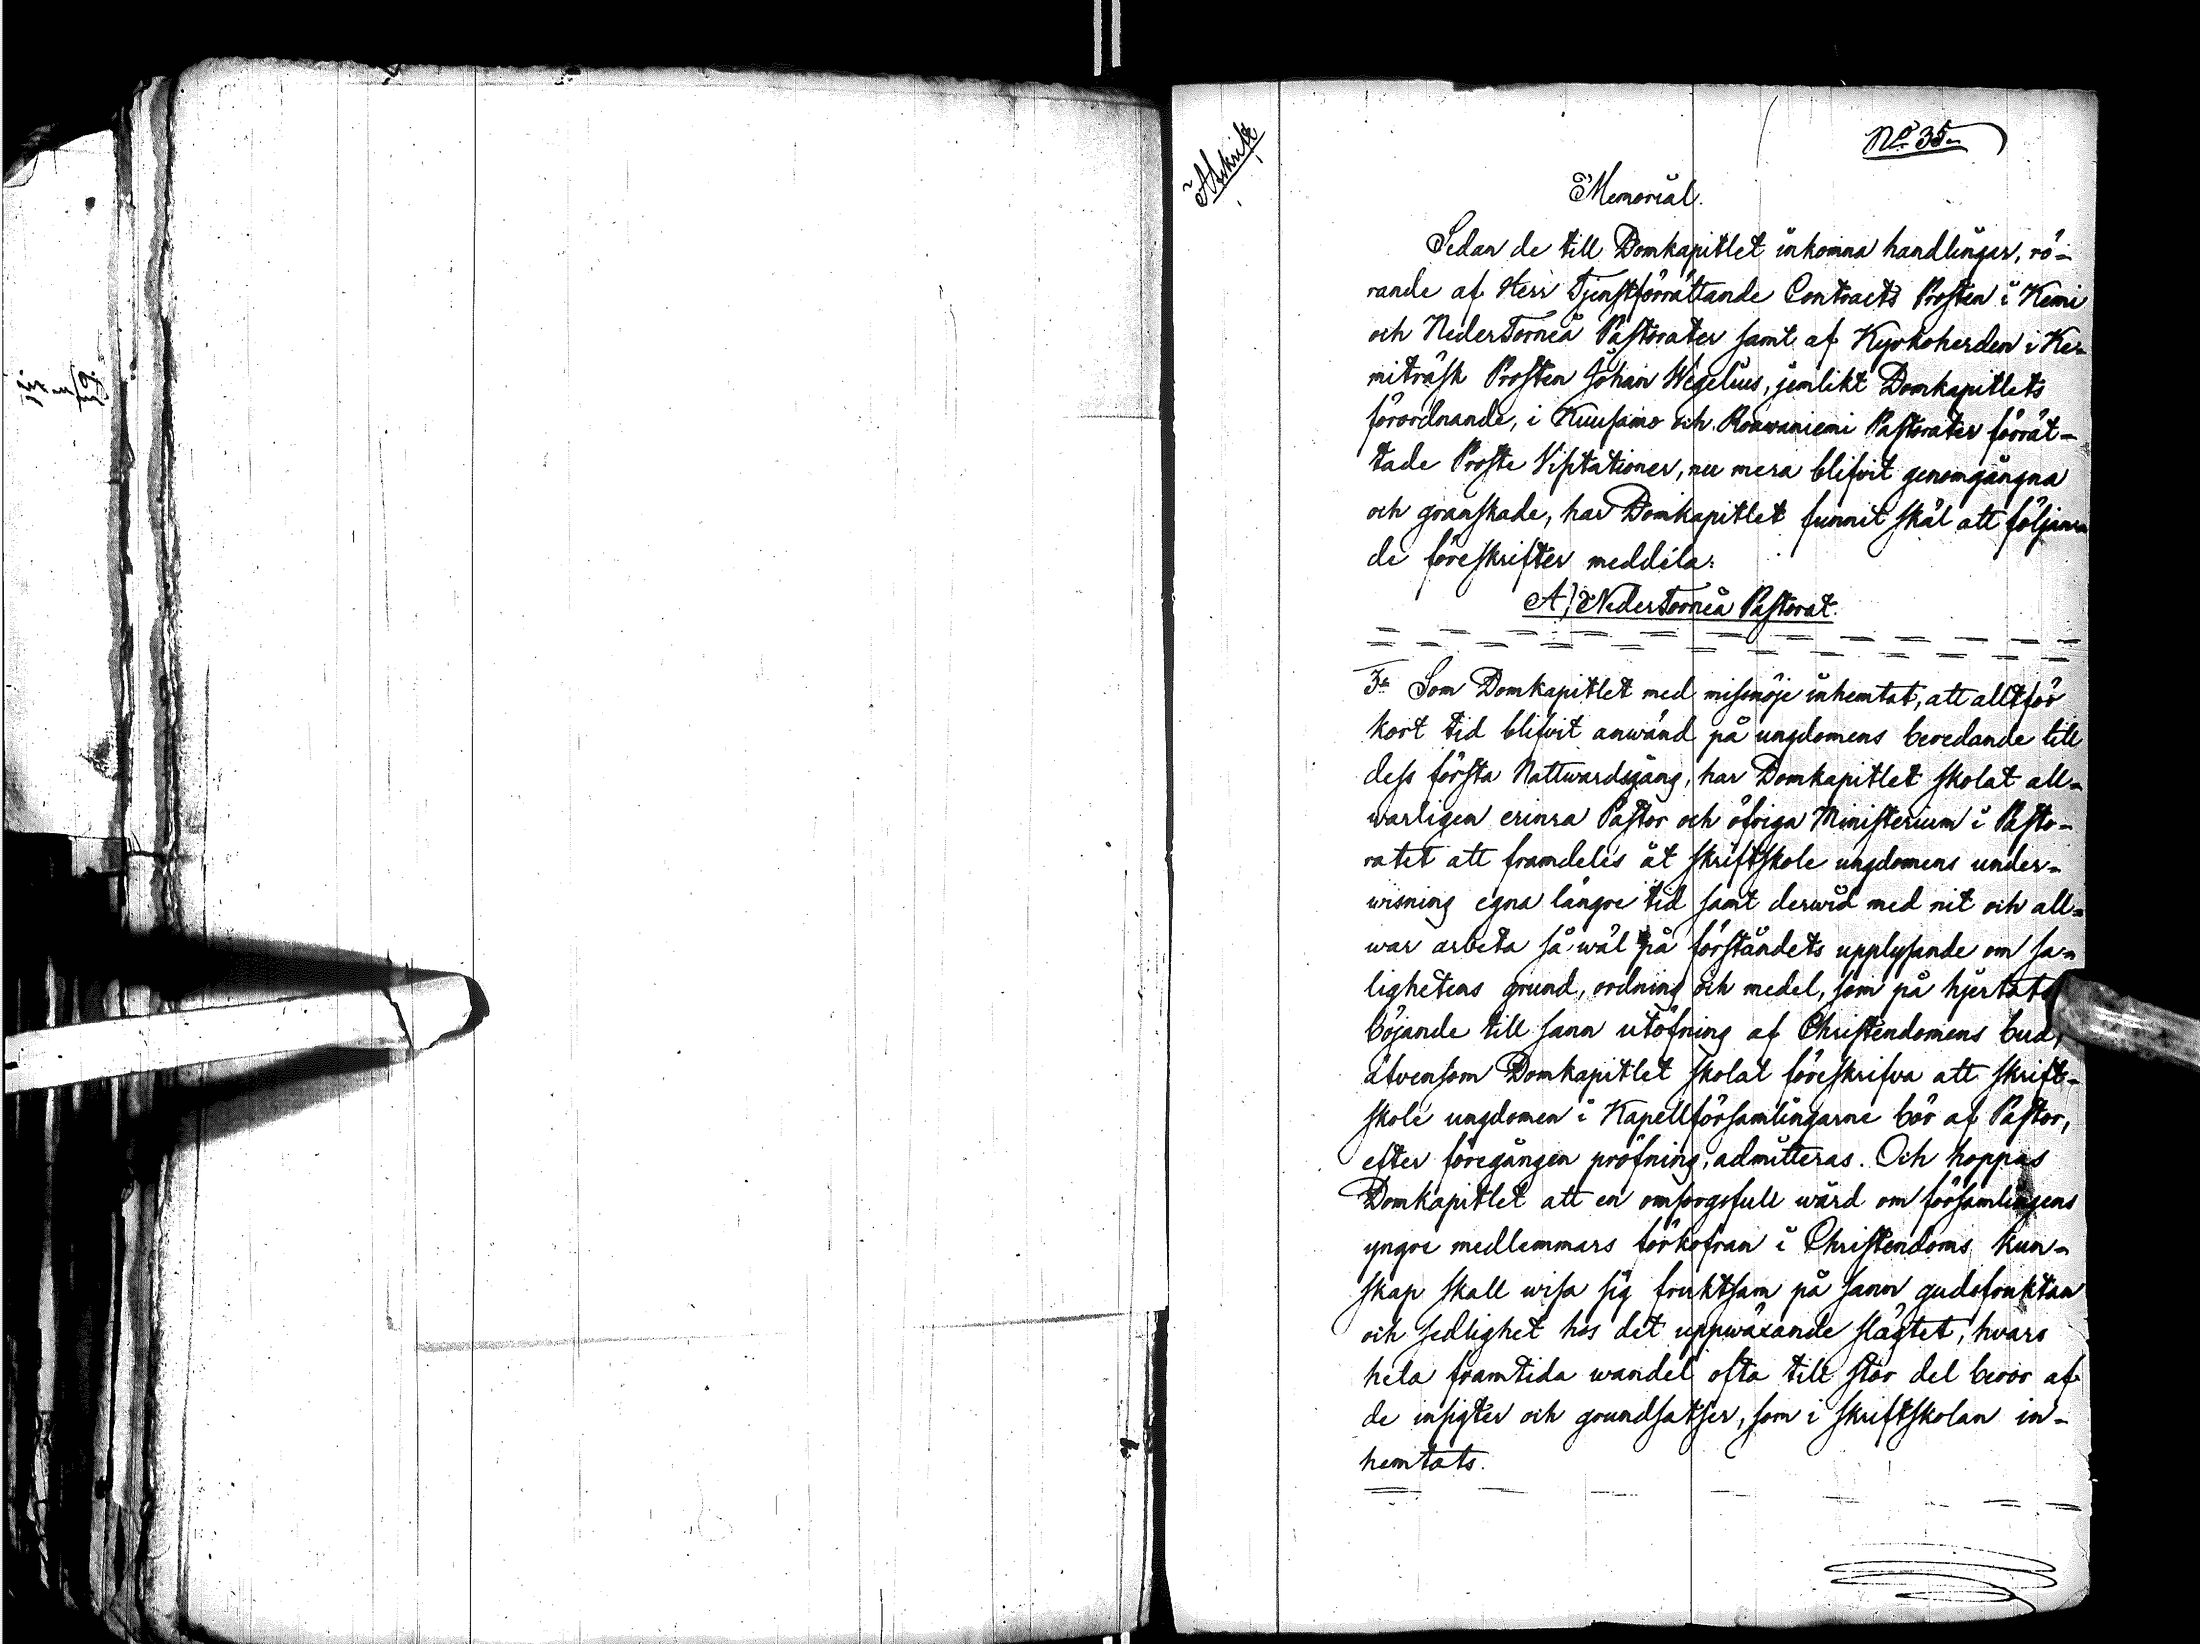 Afskrift
No 35.
Memorial.
Sedan de till Domkapitlet inkomna handlingar, rö-
rande af Herr Tjenstförrättande Contracts Prosten i Kemi
och NederTorneå Pastorater samt af Kyrkoherden i Ke-
miträsk Prosten Johan Wegelius, jemlikt Domkapitlets
förordnande, i Kuusamo och Roawaniemi Pastorater förrät-
tade Proste Visitationer, nu mera blifvit genomgångna
och granskade, har Domkapitlet funnit skäl att följan-
de föreskrifter meddela:
A) NederTorneå Pastorat.
3o Som Domkapitlet med missnöje inhemtat, att alltför
kort tid blifvit anwänd på ungdomens beredande till
dess första Nattwardsgång, har Domkapitlet skolat all-
warligen erinra Pastor och öfriga Ministerium i Pasto-
ratet att framdeles åt skriftskole ungdomens under-
wisning egna längre tid samt derwid med nit och all-
war arbeta så wäl på förståndets upplysande om sa-
lighetens grund, ordning och medel, som på hjertats
böjande till sann utöfning af Christendomens bud,
äfvensom Domkapitlet skolat föreskrifva att skrift-
skole ungdomen i Kapellförsamlingarne bör af Pastor,
efter föregången pröfning, admitteras. Och hoppas
Domkapitlet att en omsorgsfull wård om församlingens
yngre medlemmars förkofran i Christendoms kun-
skap skall wisa sig fruktsam på sann gudsfruktan
och sedlighet hos det uppwäxande slägtet, hvars
hela framtida wandel ofta till stor del beror af
de insigter och grundsatser, som i skriftskolan in-
hemtats.